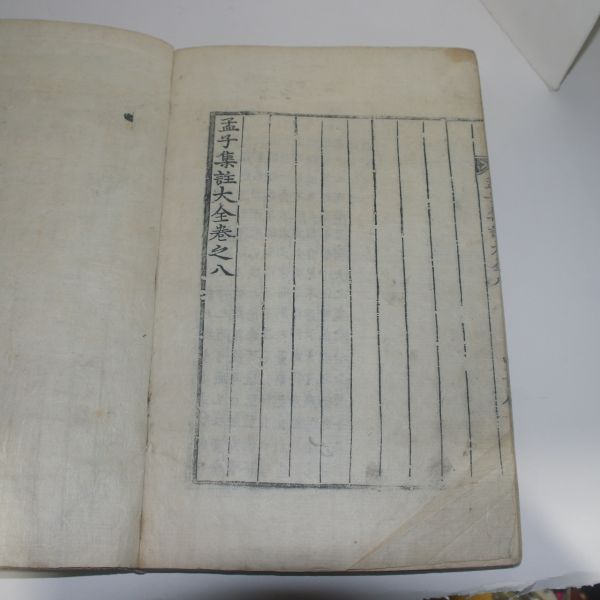 孟子集註大全卷之八